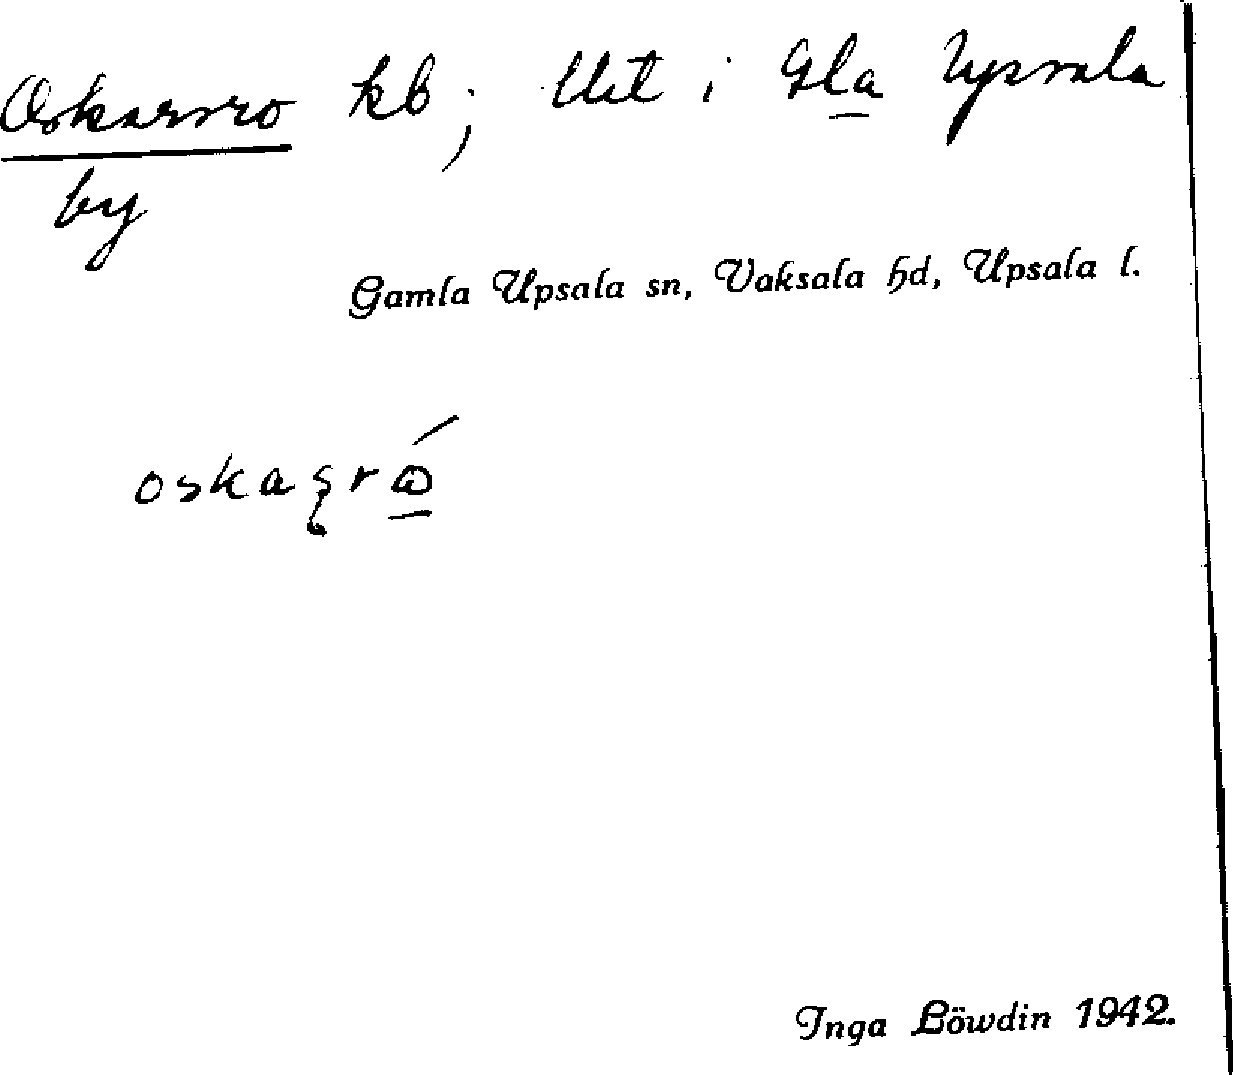 Oskarsro kb; Ut i Gla Upsala
by
Gamla Upsala sn, Vaksala hd, Upsala l.
Inga Löwdin 1942.